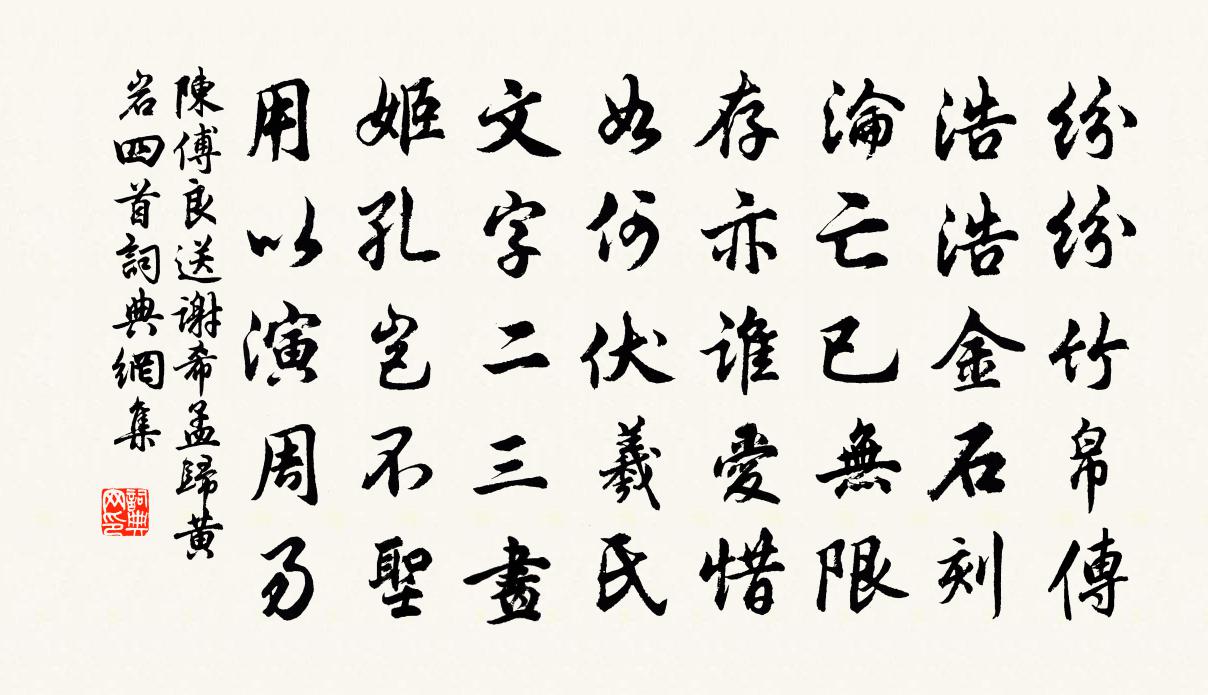 紛紛竹帛傳
浩浩金石刻
淪亡已無限
存亦誰愛惜
如何伏羲氏
文字二三畫
姬孔豈不聖
用以演周易
陳傅良送謝希孟歸黃
岩四首詞典網集
詞典
网印